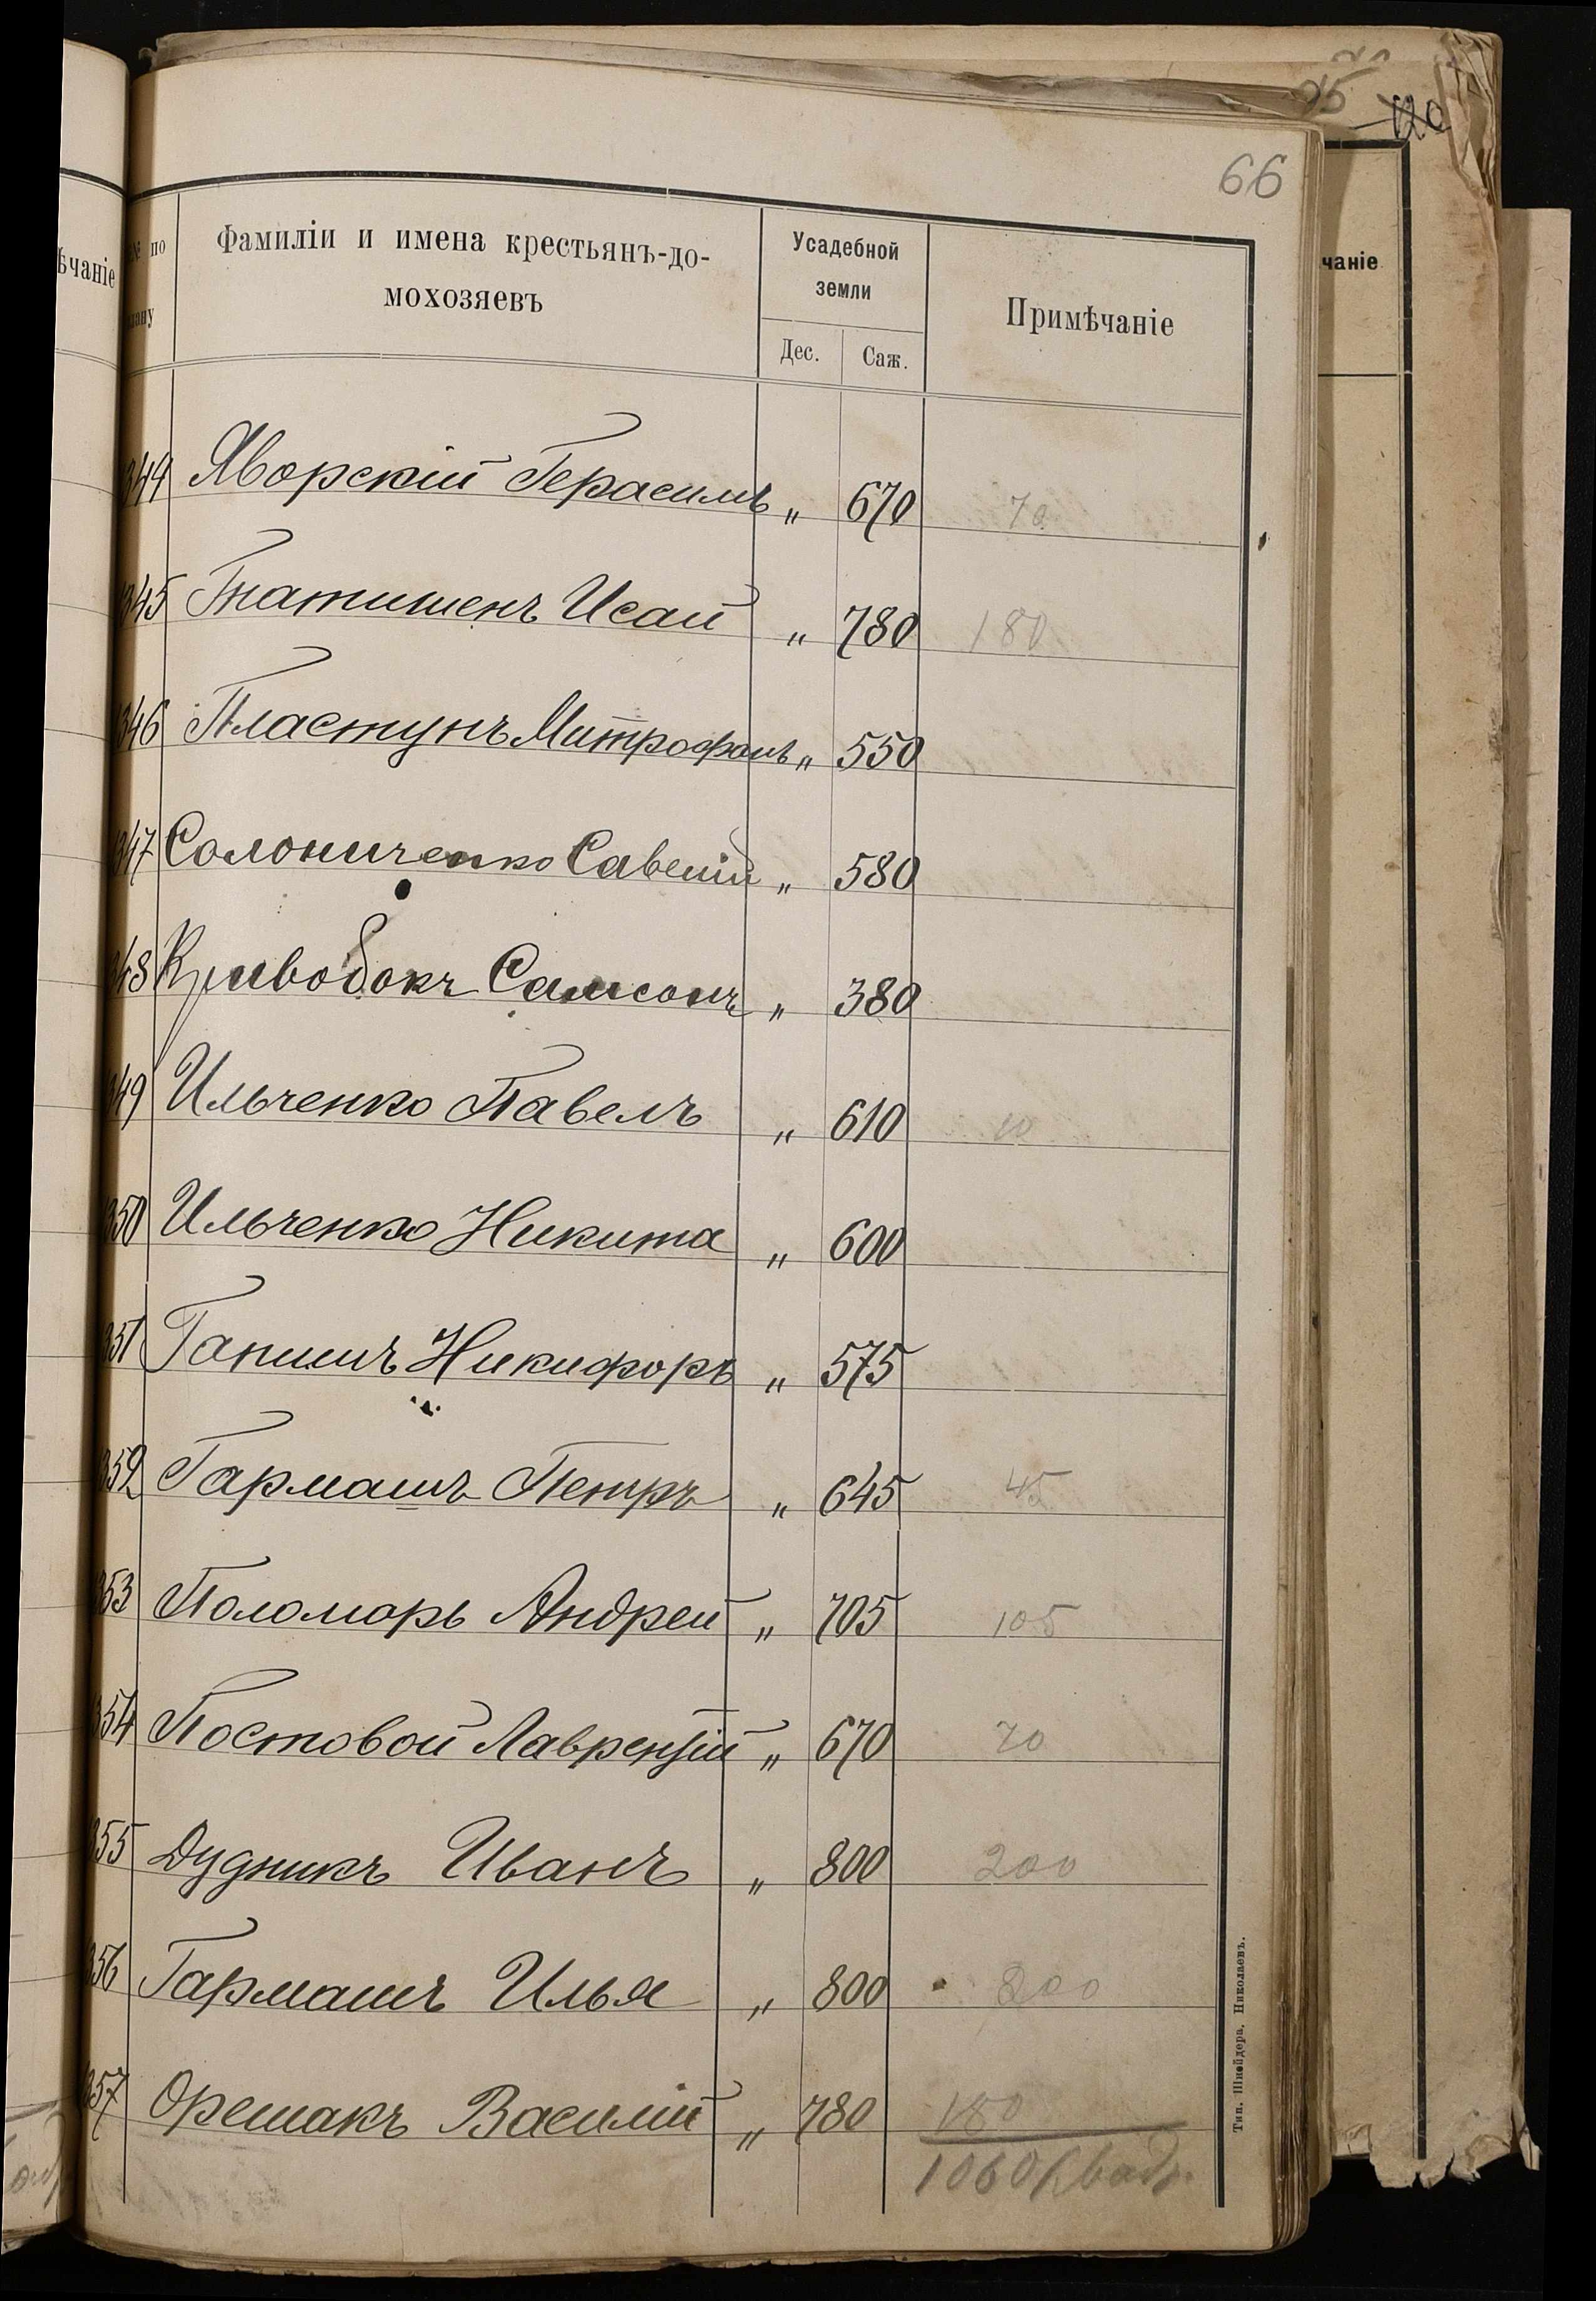 66
№ по плану
Фамиліи и имена крестьянъ-до-
мохозяевъ
Усадебной
земли
Дес. Саж.
Примѣчаніе
ѣчаніе
чаніе
344 Яворскій Герасимъ " 670 70
345 Гнатишенъ Исай " 780 180
346 Пластунъ Митрофанъ " 550
347 Солониченко Савелій " 580
348 Кривобокъ Самсонъ " 380
349 Ильченко Павелъ " 610 10
350 Ильченко Никита " 600
351 Никифоръ " 575
352 Гармашъ Петръ " 645 45
353 Поломарь Андрей " 705 105
354 Постовой Лаврентій " 670 70
355 Дудникъ Иванъ " 800 200
356 Гармашъ Илья " 800 200
357 Орешакъ Василій " 780 180
1060 Квадр.
Тип. Шнейдера, Николаевъ.